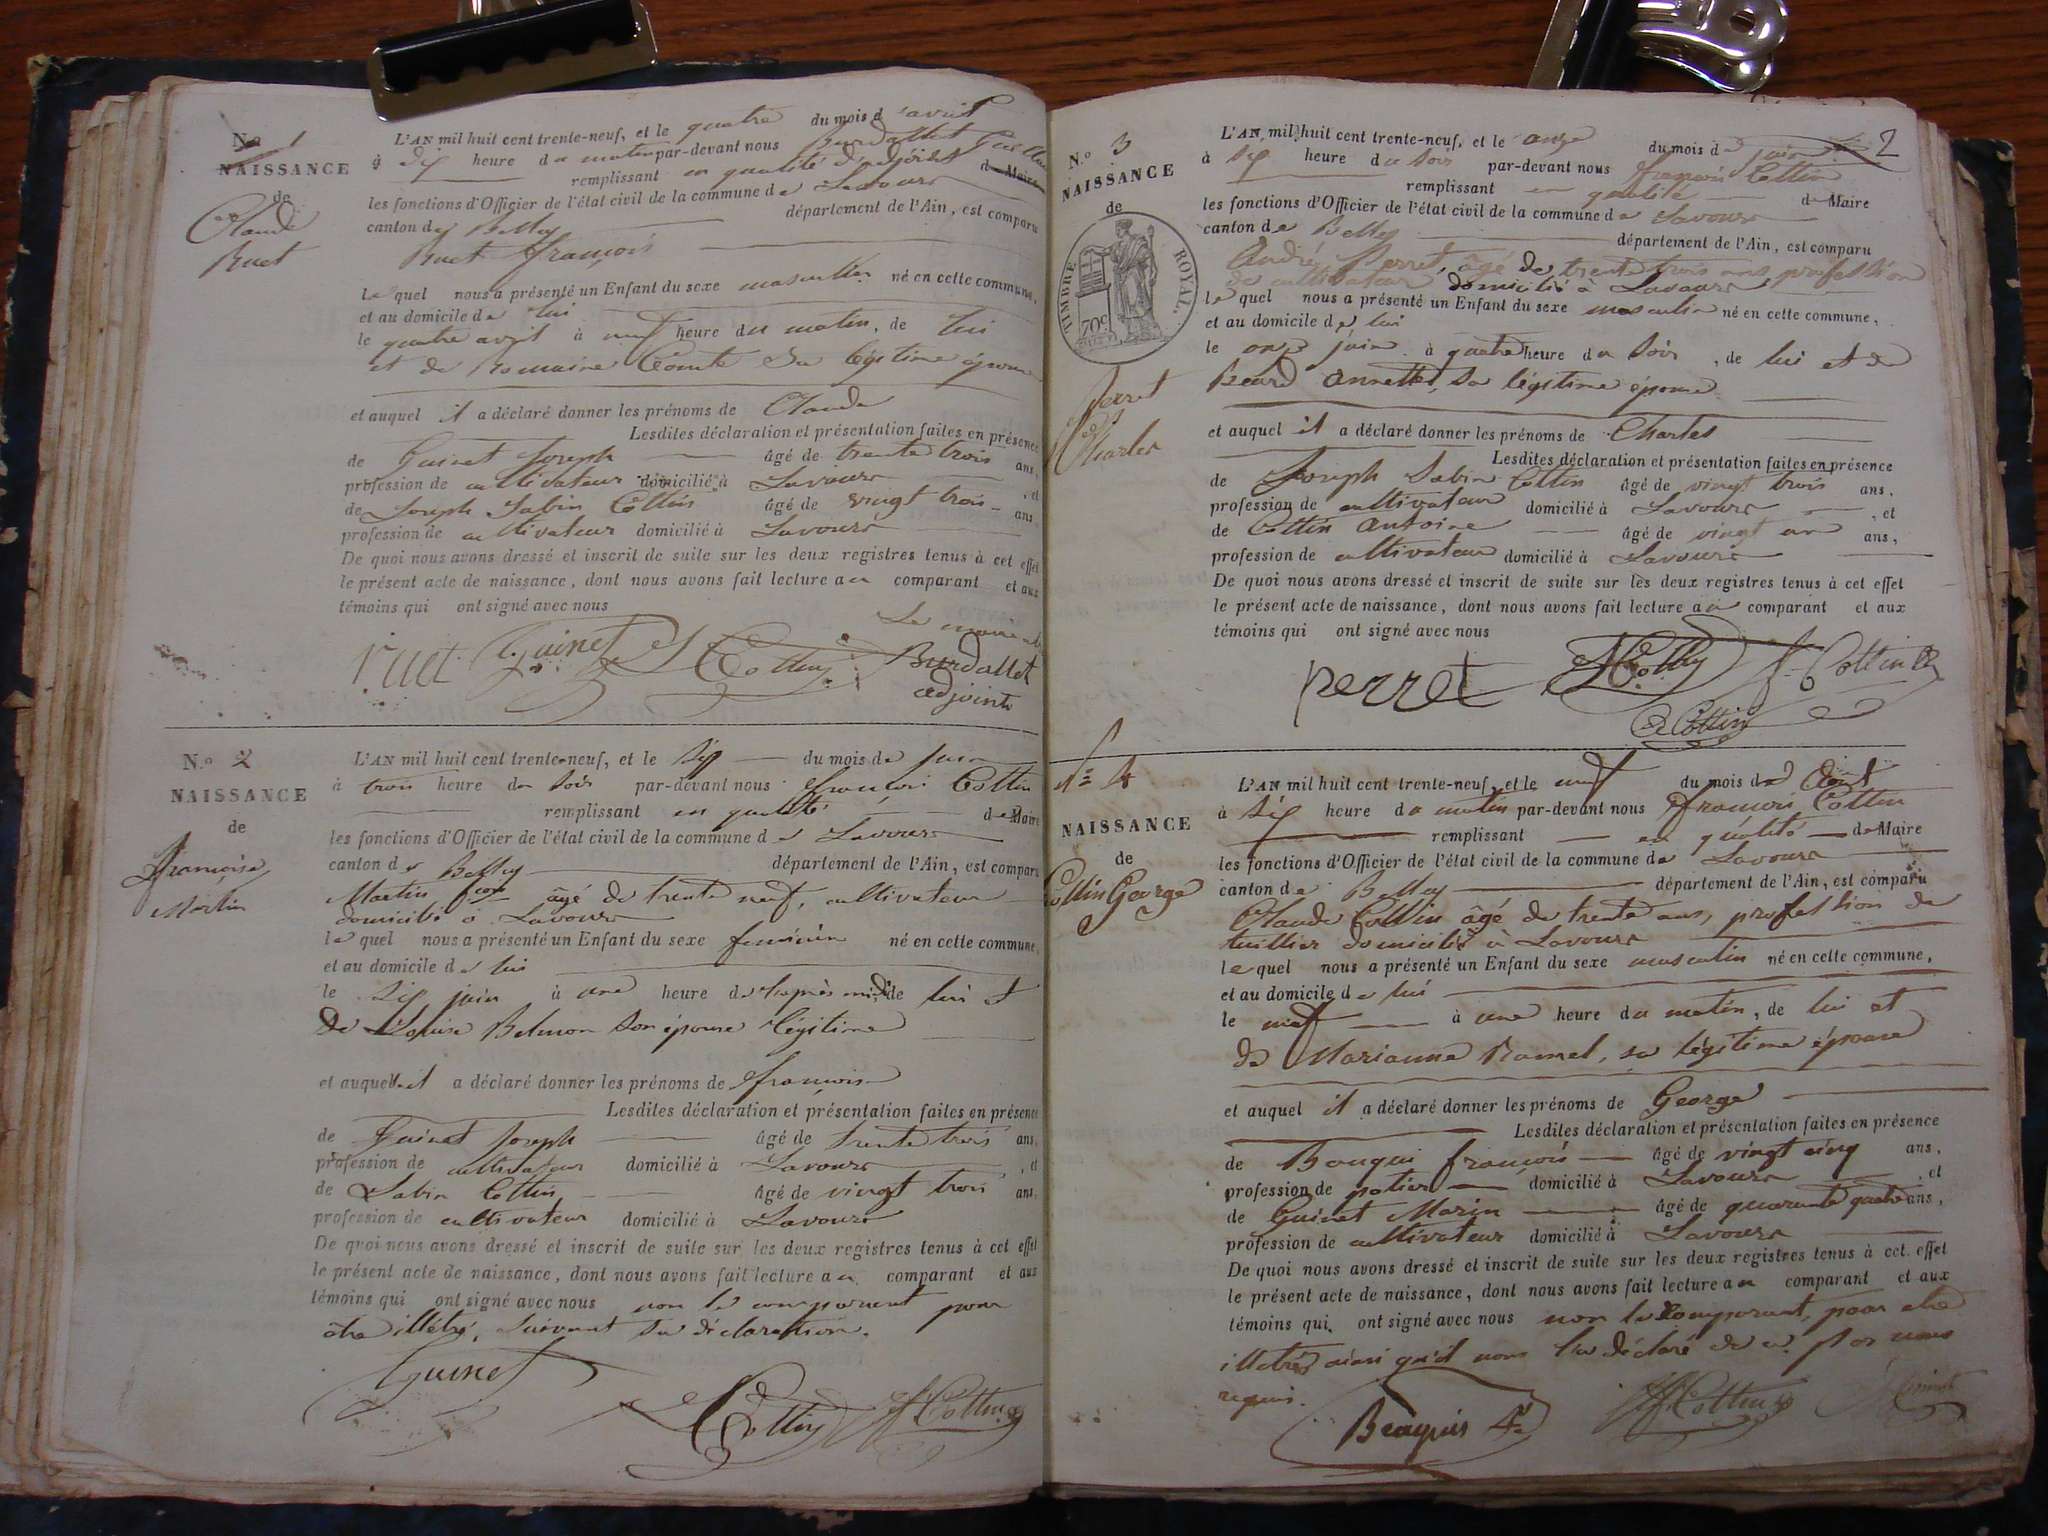 N.o 1
NAISSANCE
de
Claude
Ruet
L'AN mil huit cent trente-neuf, et le quatre du mois d'avril
à dix heure du matin par-devant nous Burdallet
remplissant en qualité d'adjoint de Maire
les fonctions d'Officier de l'état civil de la commune de Lavours
canton de Belley département de l'Ain, est comparu
Ruet françois
lequel nous a présenté un Enfant du sexe masculin né en cette commune,
et au domicile de lui
le quatre avril à neuf heure du matin, de lui
et de Romaine Comte sa légitime épouse
et auquel il a déclaré donner les prénoms de Claude
Lesdites déclaration et présentation faites en présence
de Guinet Joseph âgé de trente trois ans,
profession de cultivateur domicilié à Lavours et
de Joseph Sabin Cottin âgé de vingt trois ans,
profession de cultivateur domicilié à Lavours
De quoi nous avons dressé et inscrit de suite sur les deux registres tenus à cet effet
le présent acte de naissance, dont nous avons fait lecture au comparant et aux
témoins qui ont signé avec nous
ruet Guinet J S Cottin Burdallet
adjoint
N.o 2
NAISSANCE
de
françoise
Martin
L'AN mil huit cent trente-neuf, et le six du mois de juin
à trois heure du soir par-devant nous françois Cottin
remplissant en qualité de Maire
les fonctions d'Officier de l'état civil de la commune de Lavours
canton de Belley département de l'Ain, est comparu
Martin fçois âgé de trente neuf, cultivateur
domicilié à Lavours
lequel nous a présenté un Enfant du sexe feminin né en cette commune,
et au domicile de lui
le six juin à une heure de l'après midi de lui et
de Louise Belmon son épouse légitime
et auquel il a déclaré donner les prénoms de françoise
Lesdites déclaration et présentation faites en présence
de Guinet Joseph âgé de trente trois ans,
profession de cultivateur domicilié à Lavours, et
de Sabin Cottin âgé de vingt trois ans,
profession de cultivateur domicilié à Lavours
De quoi nous avons dressé et inscrit de suite sur les deux registres tenus à cet effet
le présent acte de naissance, dont nous avons fait lecture au comparant et aux
témoins qui ont signé avec nous non le comparant pour
être illétré, suivant sa déclaration.
Guinet
J S Cottin f Cottin
2
N.o 3
NAISSANCE
de
TIMBRE ROYAL.
70c
Perret
Charles
L'AN mil huit cent trente-neuf, et le onze du mois de juin
à six heure du soir par-devant nous françois Cottin
remplissant en qualité de Maire
les fonctions d'Officier de l'état civil de la commune de Lavours
canton de Belley département de l'Ain, est comparu
André Perret, âgé de trente trois ans profession
de cultivateur, domicilié à Lavours
lequel nous a présenté un Enfant du sexe masculin né en cette commune,
et au domicile de lui
le onze juin à quatre heure du soir, de lui et de
Beard Annette, sa légitime épouse
et auquel il a déclaré donner les prénoms de Charles
Lesdites déclaration et présentation faites en présence
de Joseph Sabin Cottin âgé de vingt trois ans,
profession de cultivateur domicilié à Lavours, et
de Cottin Antoine âgé de vingt un ans,
profession de cultivateur domicilié à Lavours
De quoi nous avons dressé et inscrit de suite sur les deux registres tenus à cet effet
le présent acte de naissance, dont nous avons fait lecture au comparant et aux
témoins qui ont signé avec nous
perret J S Cottin f Cottin
A Cottin
N.o 4
NAISSANCE
de
Cottin George
L'AN mil huit cent trente-neuf, et le neuf du mois de Août
à six heure du matin par-devant nous françois Cottin
remplissant en qualité de Maire
les fonctions d'Officier de l'état civil de la commune de Lavours
canton de Belley département de l'Ain, est comparu
Claude Cottin âgé de trente ans, profession de
tuillier domicilié à Lavours
lequel nous a présenté un Enfant du sexe masculin né en cette commune,
et au domicile de lui
le neuf à une heure du matin, de lui et
de Marianne Ramel, sa légitime épouse
et auquel il a déclaré donner les prénoms de George
Lesdites déclaration et présentation faites en présence
de Bouqui françois âgé de vingt cinq ans,
profession de potier domicilié à Lavours, et
de Guinet Marin âgé de quarante quatre ans,
profession de cultivateur domicilié à Lavours
De quoi nous avons dressé et inscrit de suite sur les deux registres tenus à cet effet
le présent acte de naissance, dont nous avons fait lecture au comparant et aux
témoins qui ont signé avec nous non le comparant, pour etre
illetré ainsi qu'il nous l'a déclaré de ce par nous
requis.
Beauquis f Cottin